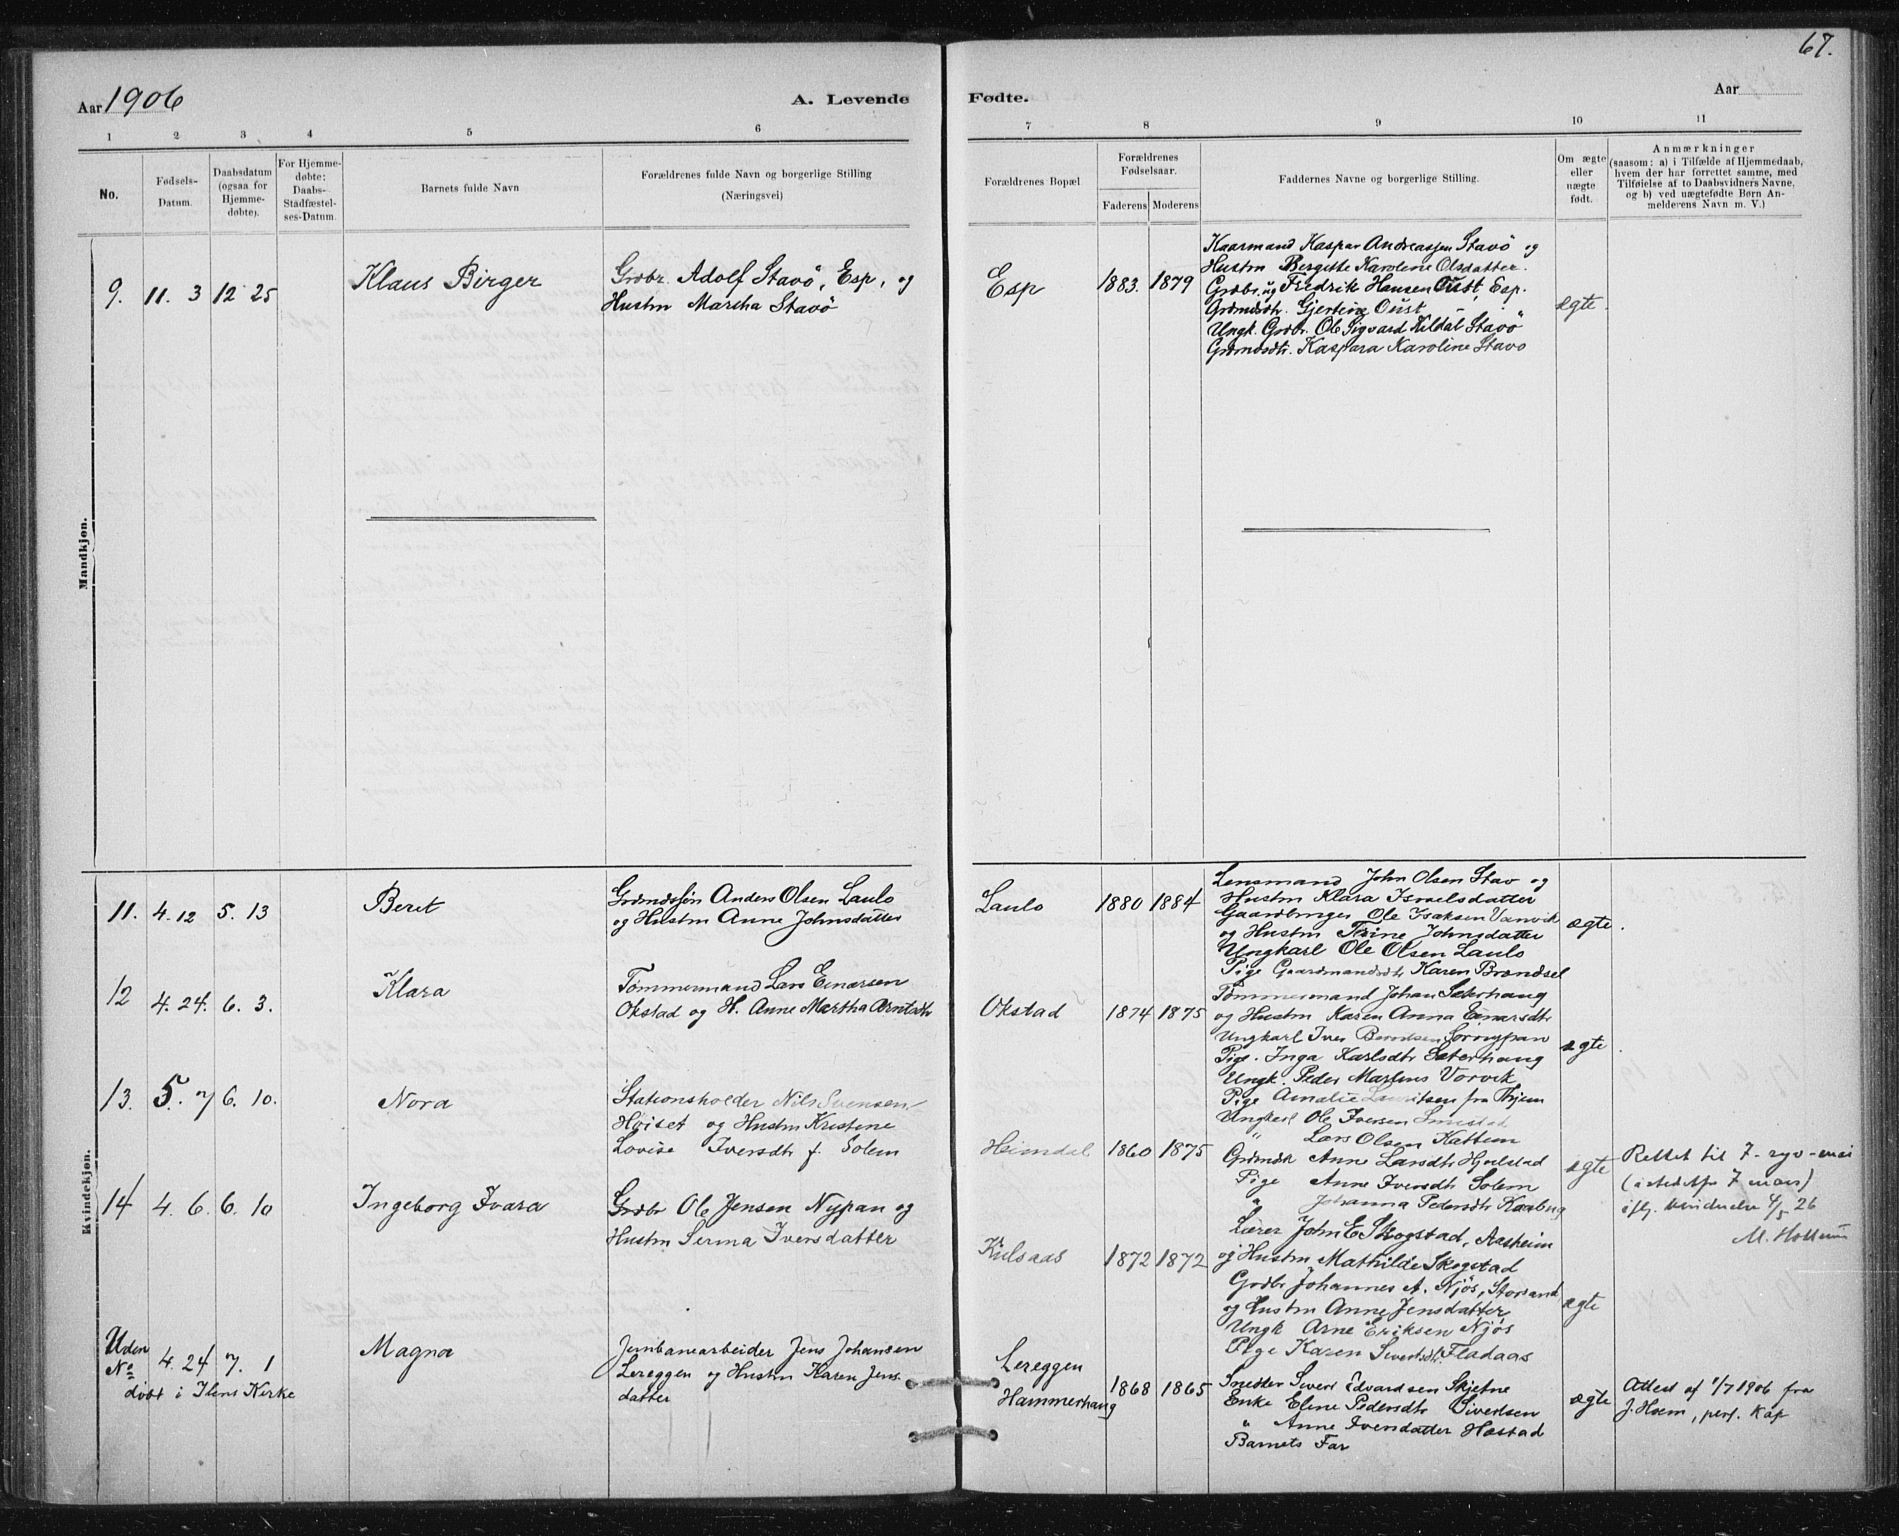 67.
Aar 1906
A. Levende
Fødte.
Aar
1 2 3 4 5 6
7 8 9 10 11
No.
Fødsels-
Datum.
Daabsdatum
(ogsaa for
Hjemme-
døbte).
For Hjemme-
døbte;
Daabs-
Stadfæstel-
ses-Datum.
Barnets fulde Navn
Forældrenes fulde Navn og borgerlige Stilling
(Næringsvei)
Forældrenes Bopæl
Forældrenes
Fødselsaar.
Faderens Moderens
Faddernes Navne og borgerlige Stilling.
Om ægte
eller
uægte
født.
Anmærkninger
(saasom: a) i Tilfælde af Hjemmedaab,
hvem der har forrettet samme, med
Tilføielse af to Daabsvidners Navne,
og b) ved uægtefødte Børn An-
melderens Navn m. V.)
Mandkjøn.
9. 11. 3 12 25
Klaus Birger
Grdbr. Adolf Stavö, Esp, og
Hustru Martha Stavö
Esp
1883. 1879
Kaarmand Kaspar Andreassen Stavö og
Hustru Bergitte Karoline Olsdatter.
Grdbr. Fredrik Hansen Oust, Esp.
Grdmdsdtr. Gjertine Oust
Ungk. Grdbr. Ole Sigvard Kildal Stavö
Grdmdsdtr. Kaspara Karoline Stavo
ægte.
Kvindekjøn.
11. 4. 12 5. 13
Beret
Grdmdssön Anders Olsen Laulo
og Hustru Anne Johnsdatter
Laulo
1880 1884
Lensmand John Olsen Stav og
Hustru Klara Israelsdatter
Gaardbruger Ole Isaksen Vanvik
og Hustru Trine Johnsdatter
Ungkarl Ole Olsen Laulo
Pige Gaardmandsdtr Karen Brændsel
ægte.
12 4. 24. 6. 3.
Klara
Tömmermand Lars Einarsen
Okstad og H. Anne Martha Arntsdtr
Okstad
1874 1875
Tömmermand Johan Sæterhaug
og Hustru Karen Anna Einarsdtr
Ungkarl Iver Berntsen Sörnypan
Pige. Inga Karlsdtr Sæterhaug
Ungk. Peder Martinus Vorvik
Pige Amalie Lauritsen fra Thjem
ægte.
13. 5. 7 6. 10.
Nora
Stationsholder Nils Svensen
Höiset og Hustru Kristine
Lovise Iversdtr f. Solem
Heimdal
1860 1875
Ungkarl Ole Iversen
" Lars Olsen Kattem
Grdmdsk Anne Larsdtr Hjelstad
Pige Anne Iversdtr Solem
" Johanna Pedersdtr
ægte
Rettet til 7. syv - mai
(istedetfor 7 mars)
ifly. 4/5 26
M.
14 4. 6. 6. 10
Ingeborg Ivara
Grdbr Ole Jensen Nypan og
Hustru Serma Iversdatter
Kulsaas
1872 1872
Lærer John E Skogstad, Aasheim
og Hustru Mathilde Skogstad
Grdbr Johannes A. Njös,
og Hustru Anne Jensdatter
Ungk Arne Eriksen Njös
Pige Karen Sivertsdtr. Fladaas
ægte
Uden
No 4. 24 7. 1
döbt i Ilens Kirke
Magna
Jernbanearbeider Jens Johansen
Lereggen og Hustru Karen Jens
datter
Lereggen
Hammerhaug
1868 1865
Snedker Sivert Edvardsen Skjetne
Enke Eline Pedersdtr Sivertsen
" Anne Iversdatter Hæstad
Barnets Far
ægte
Attest af 1/7 1906 fra
J. Hoem, pers. Kap